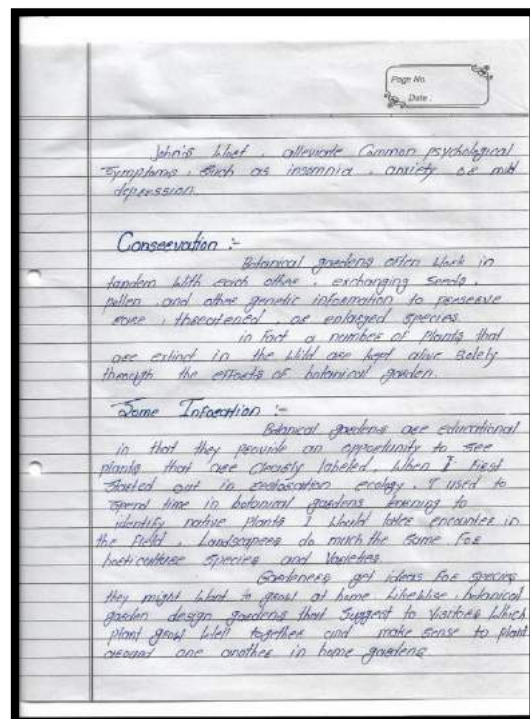 Page No.
Date :
John's Wort, alleviate Common psychological
symptoms, such as insomnia, anxiety or mild
depression.
Conservation :-
Botanical gardens often work in
tandem with each other, exchanging seeds,
pollen, and other genetic information to preserve
rare, threatened, or enlarged species.
in Fact a number of plants that
are extinct in the wild are kept alive solely
through the efforts of botanical garden.
Some :-
Botanical gardens are educational
in that they provide an opportunity to see
plants that are labeled, When I First
started out in restoration ecology, I used to
spend time in botanical gardens to
identify native plants I would later encounter in
the Field, Landscapers do much the same For
horticulture species and Varieties.
Gardeners get ideas For species
they might want to grow at home Likewise, botanical
garden design gardens that Suggest to visitors Which
plant grow Well together and make sense to plant
around one another in home gardens